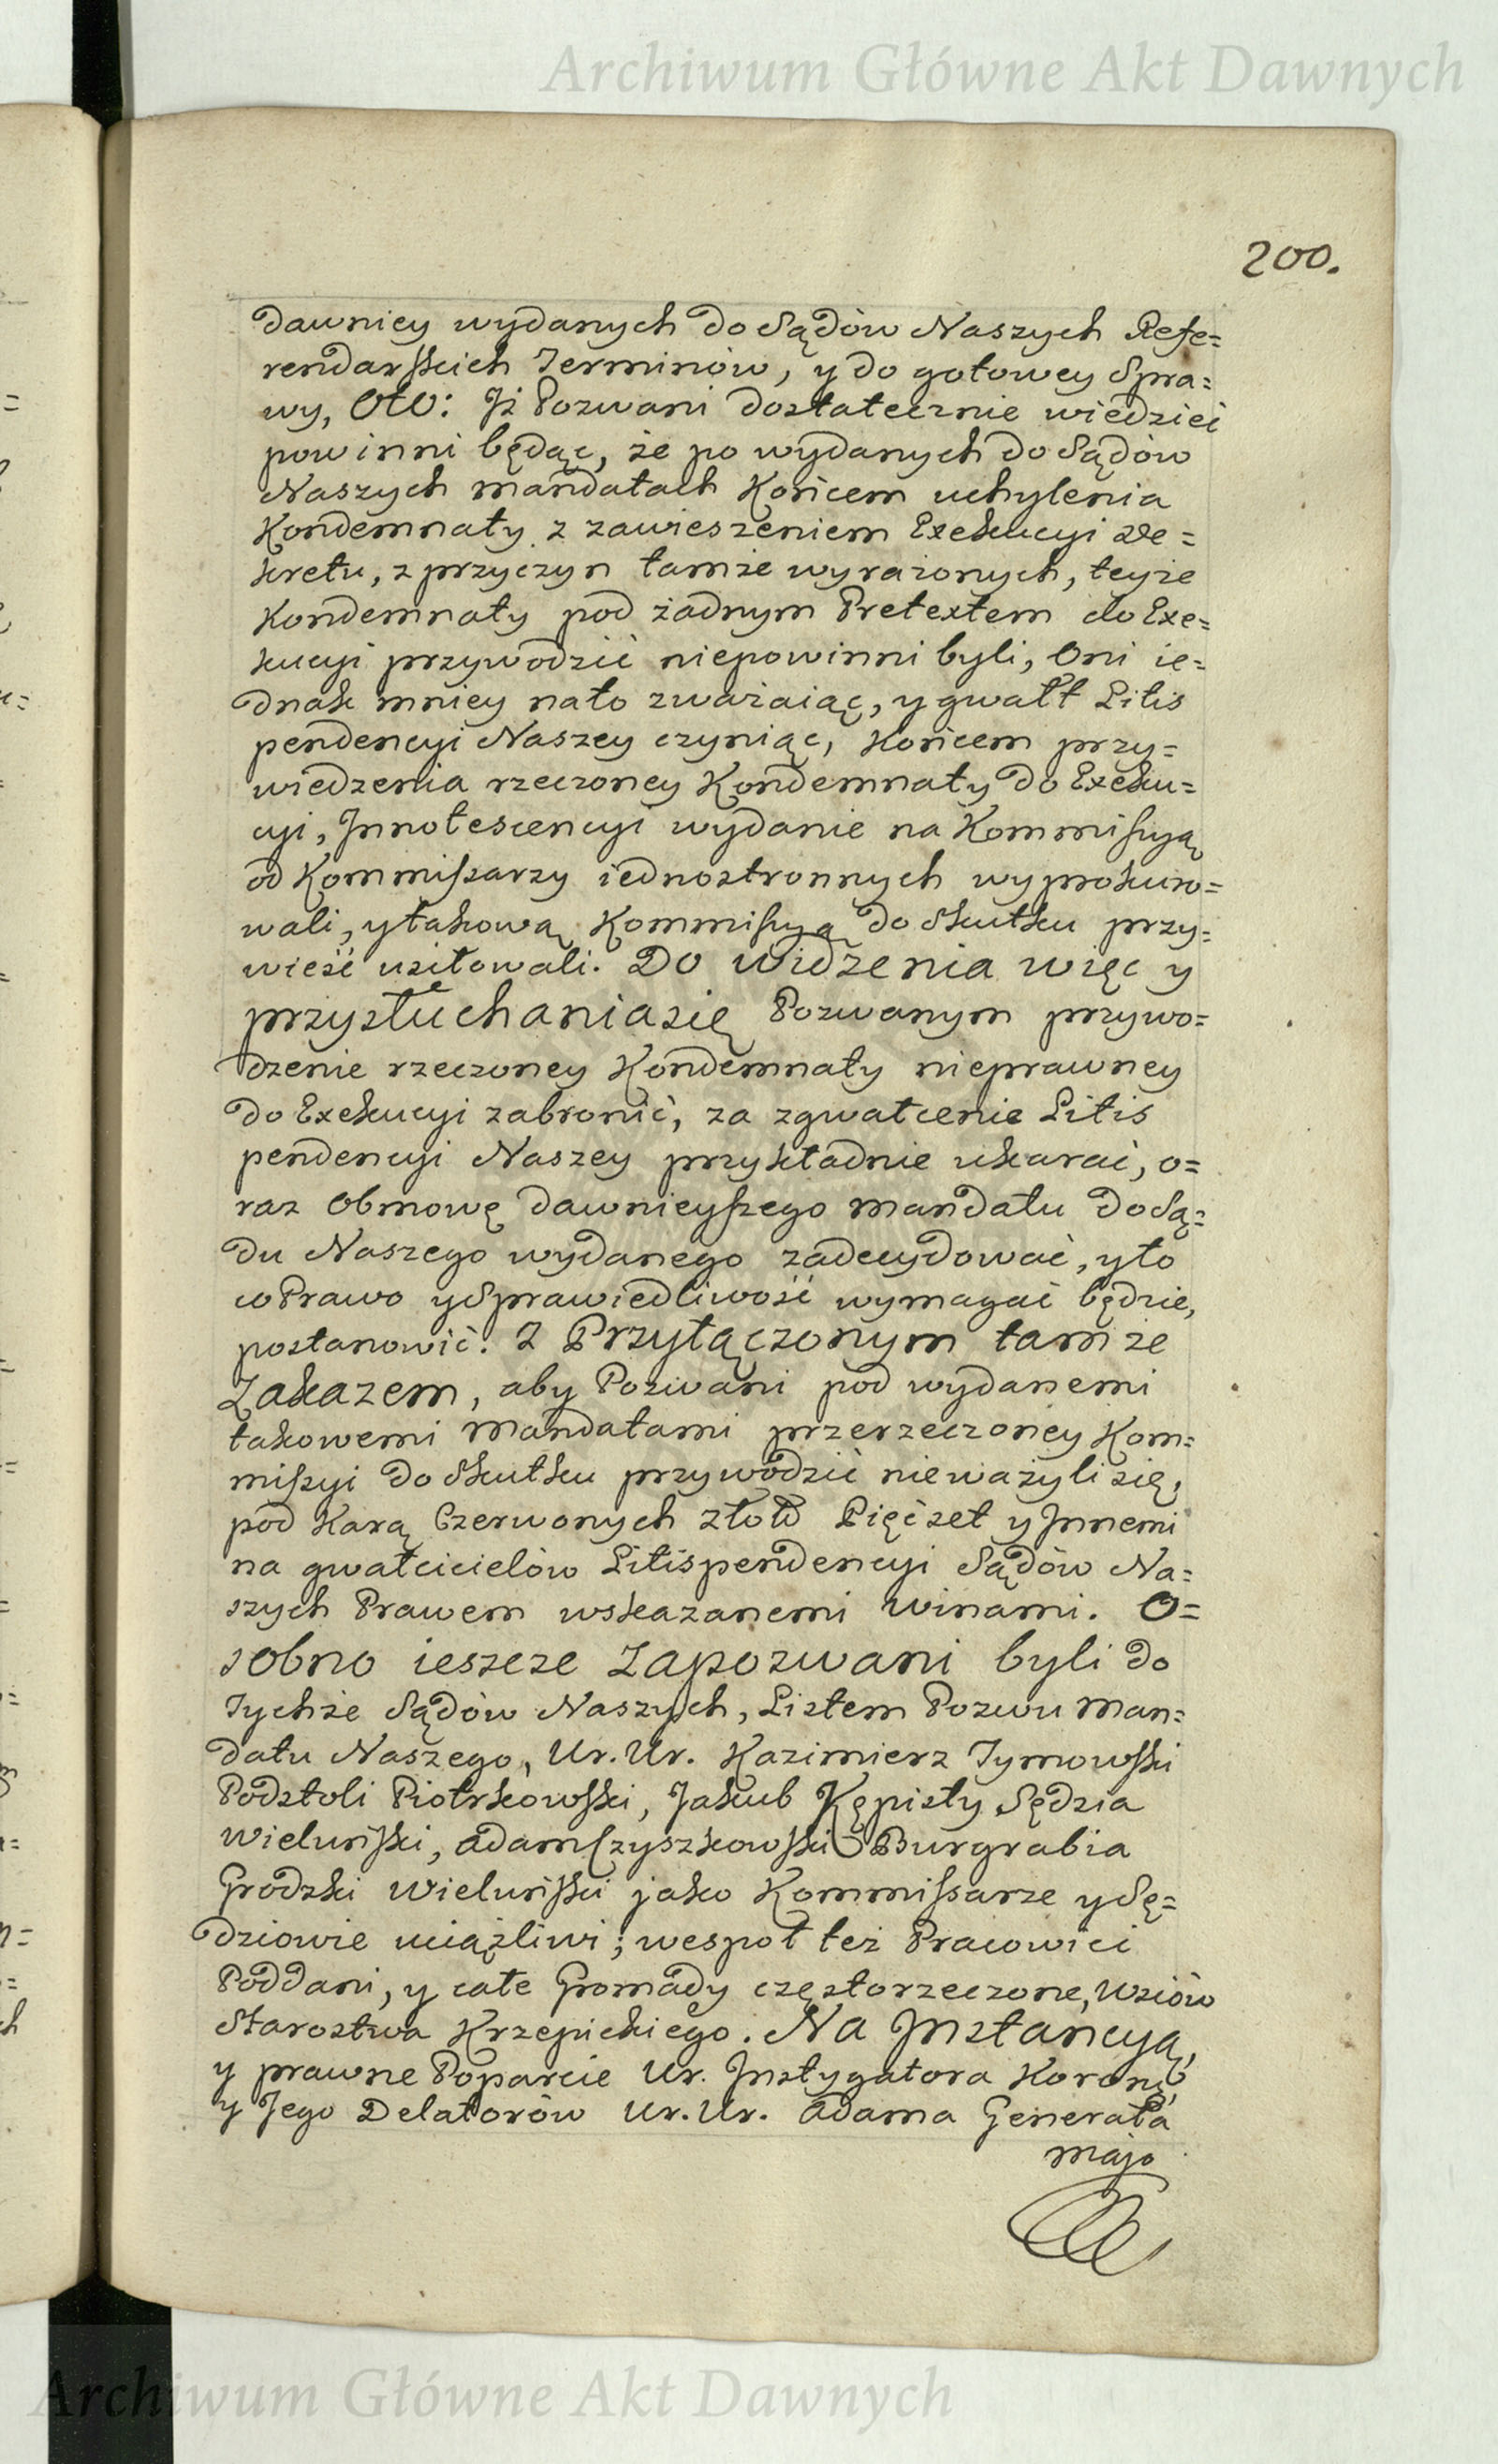 Archiwum Główne Akt Dawnych
200.
dawniey wydanych do Sądów Naszych Refe=
rendarskich Terminów, y do gotowey Spra=
wy, Oto: Jż Pozwani dostatecznie wiedzieć
powinni będąc, że po wydanych do Sądów
Naszych Mandatach końcem uchylenia
Kondemnaty z zawieszeniem Exekucyi De=
kretu, z przyczyn tamże wyrażonych, teyże
Kondemnaty pod żadnym Pretextem do Exe=
kucyi przywodzić niepowinni byli, Oni ie=
dnak mniey nato zważaiąc, y gwałt Litis
pendencyi Naszey czyniąc, końcem przy=
wiedzenia rzeczoney Kondemnaty do Exeku=
cyi, Jnnotescencyi wydanie na Kommissyą
od Kommissarzy iednostronnych wyprokuro=
wali, y takową Kommissyą do Skutku przy=
wieść usiłowali. Do widzenia więc y
przysłuchania się Pozwanym przywo=
dzenie rzeczoney Kondemnaty nieprawney
do Exekucyi zabronić, za zgwałcenie Litis
pendencyi Naszey przykładnie ukarać, o=
raz Obmowę dawnieyszego Mandatu do Są=
du Naszego wydanego zadecydować, y to
co Prawo y Sprawiedliwość wymagać będzie,
postanowić. Z Przyłączonym tamże
Zakazem, aby Pozwani pod wydanemi
takowemi Mandatami przerzeczoney Kom=
missyi do Skutku przywodzić nieważyli się,
pod karą Czerwonych złotd Pięćset y Jnnemi
na gwałcicielów Litispendencyi Sądów Na=
szych Prawem wskazanemi winami. O=
sobno ieszcze Zapozwani byli do
Tychże Sądów Naszych, Listem Pozwu Man=
datu Naszego, Ur. Ur. Kazimierz Tymowski
Podstoli Piotrkowski, Jakub Kępisty Sędzia
Wieluński, Adam Czyszkowski Burgrabia
Grodzki Wieluński jako Kommissarze y Sę=
dziowie uciążliwi; wespoł też Pracowici
Poddani, y całe Gromady częstorzeczone, Wsiów
Starostwa Krzepickiego. Na Jnstancyą,
y prawne Poparcie Ur. Jnstygatora Koronn,
y Jego Delatorów Ur. Ur. Adama Generała
majo
Archiwum Główne Akt Dawnych